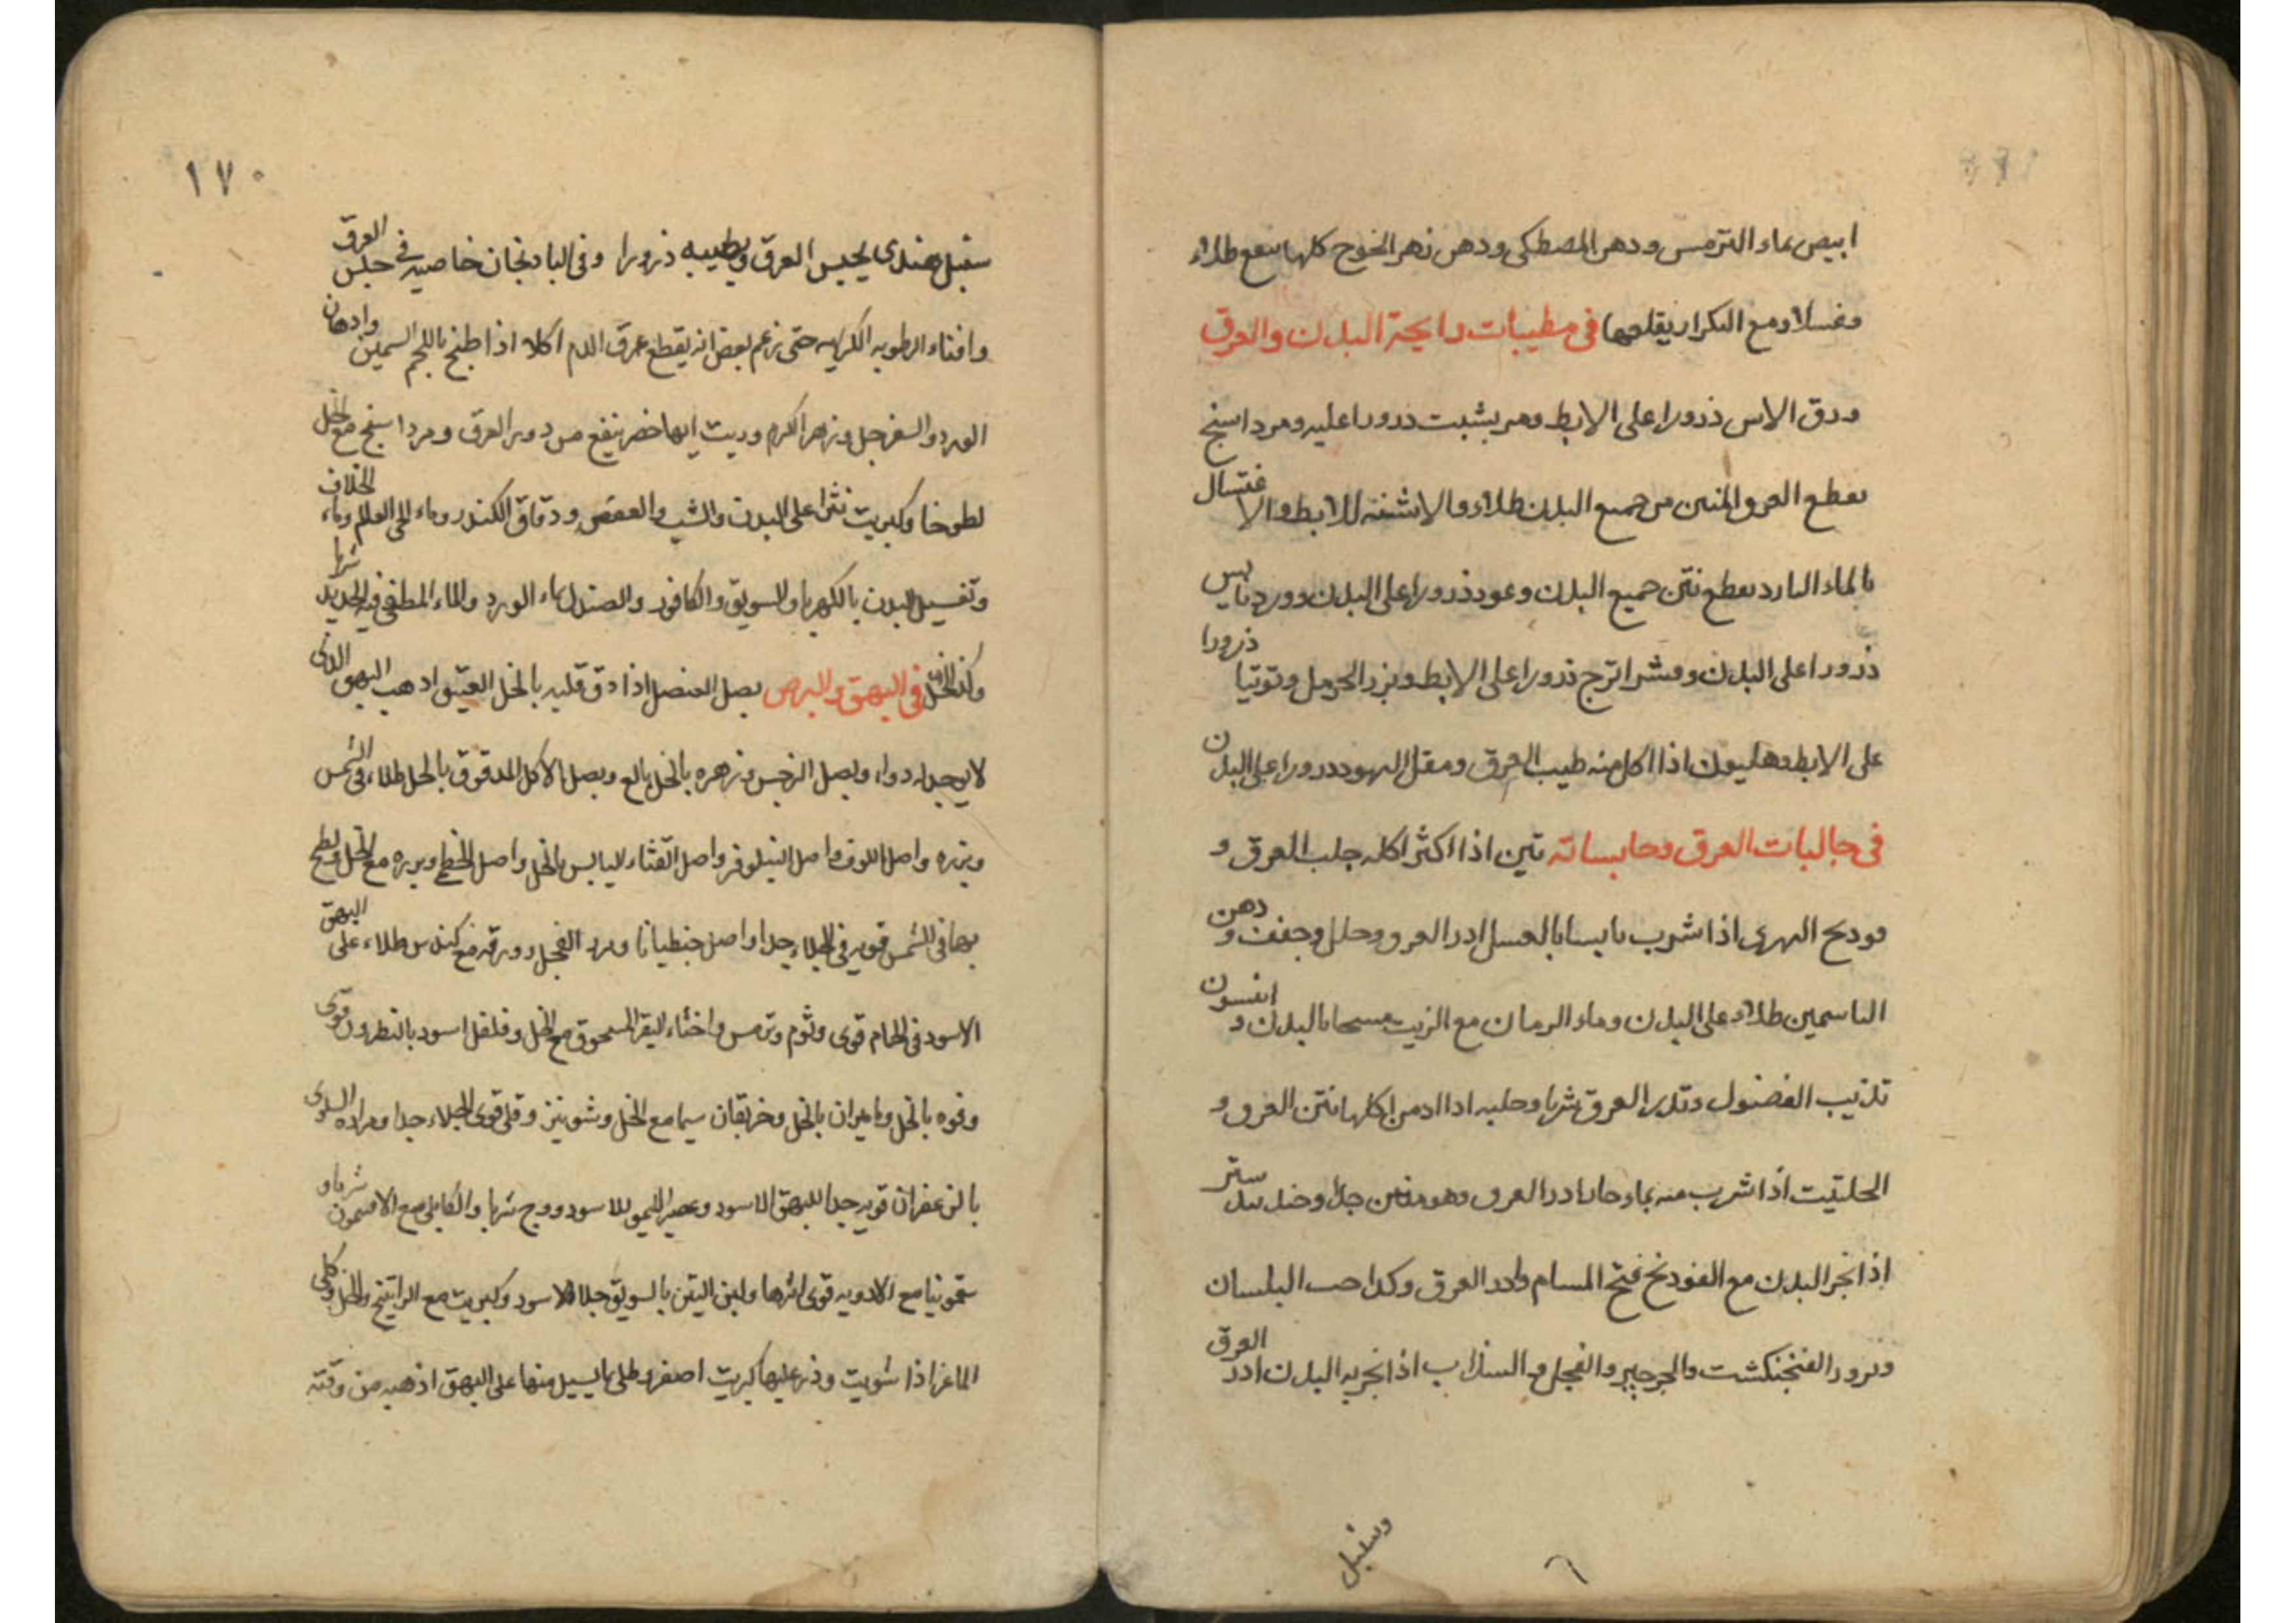 ابيض بماء الترمس ودهن المصطكى ودهن زهر الخوخ كلها ينفع طلاء
وغسلا ومع التكرار يقلعها في مطيبات رايحة البدن والعرق
ورق الاس ذرورا على الابط ومر بشبت ذرورا عليه ومرداسنج
يقطع العرق المنتن من جميع البدن طلاء والاشنة للابط والاغتسال
بالماء البارد يقطع نتن جميع البدن وعود ذرورا على البدن وورد يابس
ذرورا على البدن وقشر اترج ذرورا على الابط وبزر الحرمل وتوتيا ذرورا
على الابط وهليون اذا اكل منه طيب العرق ومقل اليهود ذرورا على البدن
في جالبات العرق وحابساته تين اذا اكثر اكله جلب العرق و
فودنج النهرى اذا شرب يابسا بالعسل ادر العرق وحلل وجفف ودهن
الياسمين طلاء على البدن وماء الرمان مع الزيت مسحا بالبدن وانيسون
تذيب الفضول وتدر العرق شربا وحلبه اذا ادمن اكلها نتن العرق و
الحلتيت اذا شرب منه بماء حار ادر العرق وهو منتن جدا
اذا بخر البدن مع الفودنج فتح المسام وادر العرق وكذا حب البلسان
وبزور الفنجنكشت والجرجير والفجل والسذاب اذا بخر به البدن ادر العرق
وسنبل
١٧٠
سنبل هندى يحبس العرق ويطيبه ذرورا وفي البادنجان خاصية في حبس العرق
وافناء الرطوبه الكريهه حتى زعم بعض انه يقطع عرق الدم اكلا اذا طبخ باللحم السمين وادهان
الورد والسفرجل وزهر الكرم وزيت ايها حضر ينفع من درور العرق ومرداسنج مع الخل
لطوخا وكبريت نثرا على البدن والشب والعفص ودقاق الكندر وماء حى العالم وماء الخلاف
وتغسيل البدن بالكهربا والسويق والكافور والصندل بماء الورد والماء المطفى فيه الحديد شربا
وكذا الخل في البهق والبرص بصل العنصل اذا دق قلبه بالخل العتيق اذهب البهق الذى
لا يوجد له دواء وبصل النرجس وزهره بالخل بالغ وبصل الاكل المدقوق بالخل طلاء في الشمس
وبزره واصل اللوف واصل النيلوفر واصل القثاء اليابس بالخل واصل الخطمى وبزره مع الخل ولطخ
بها في الشمس قويه في الجلاء جدا واصل جنطيانا وبزر الفجل وورقه مع كندس طلاء على البهق
الاسود في الحمام قوى وثوم وترمس واخثاء البقر المسحوق مع الخل وفلفل اسود بالنطرون قوى
وفوه بالخل وماميران بالخل وخربقان سيما مع الخل وشونيز وقلى قوى الجلاء جدا ومراره
بالزعفران قويه جدا للبهق الاسود وعصير الليمو للاسود ووج شربا والكابلى مع الافتيمون شربا و
سقمونيا مع الادويه قوى اثرها ولبن التين بالسويق جلاء للاسود وكبريت مع الراتينج والخل وكلى
الماعز اذا شويت وذر عليها كبريت اصفر وطلى بما يسيل منها على البهق اذهبه من وقته